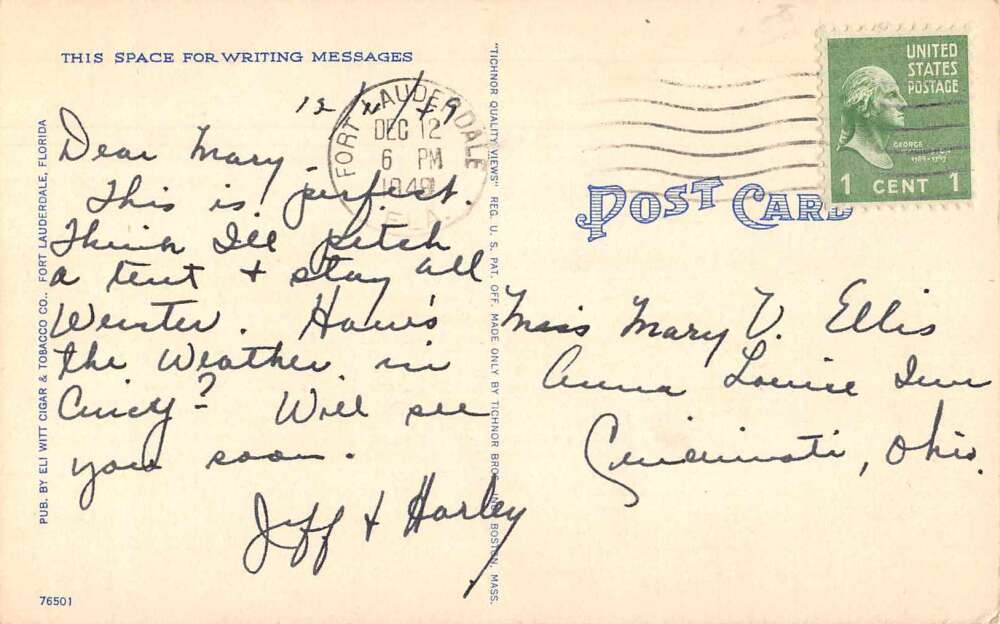 THIS SPACE FOR WRITING MESSAGES
Dear Mary.
This is perfect.
Think Ill pitch
a tent + stay all
Winter. How's
the Weather in
Cincy? Will see
you soon.
Jeff + Harley
FORT LAUDERDALE
DEC 12
6 PM
1949
FLA.
UNITED
STATES
POSTAGE
GEORGE
WASHINGTON
1789-1797
1 CENT 1
POST CARD
Miss Mary V. Ellis
Anna Louise Inn
Cincinnati, Ohio.
PUB. BY ELI WITT CIGAR & TOBACCO CO., FORT LAUDERDALE, FLORIDA
"TICHNOR QUALITY VIEWS" REG. U. S. PAT. OFF. MADE ONLY BY TICHNOR BROS., INC., BOSTON, MASS.
76501